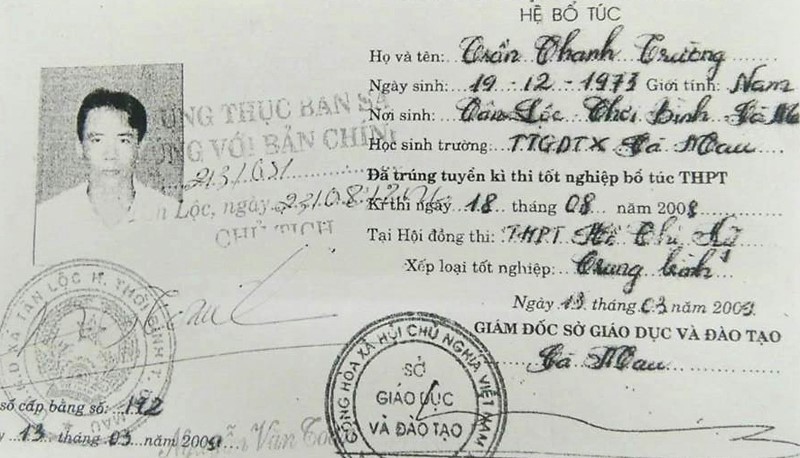 HỆ BỔ TÚC
Họ và tên: Trần Thanh Trường
Ngày sinh: 19 - 12 - 1973 Giới tính: Nam
Nơi sinh: Tân Lộc Thới Bình Cà M
Học sinh trường: TTGDTX Cà Mau
Đã trúng tuyển kì thi tốt nghiệp bổ túc THPT
Kì thi ngày 18 tháng 08 năm 2008
Tại Hội đồng thi: THPT
Xếp loại tốt nghiệp: Trung bình
Ngày 13 tháng 03 năm 2009
GIÁM ĐỐC SỞ GIÁO DỤC VÀ ĐÀO TẠO
Cà Mau
THỰC BẢN SA
VỚI BẢN CHÍN
Lộc, ngày
CHỦ TỊCH
XÃ TÂN LỘC H. THỚI BÌNH T.
MAU
CỘNG HÒA XÃ HỘI CHỦ NGHĨA VIỆT NAM
SỞ
GIÁO DỤC
VÀ ĐÀO TẠO
số cấp bằng số: 192
13 tháng 03 năm 2009
Nguyễn Văn